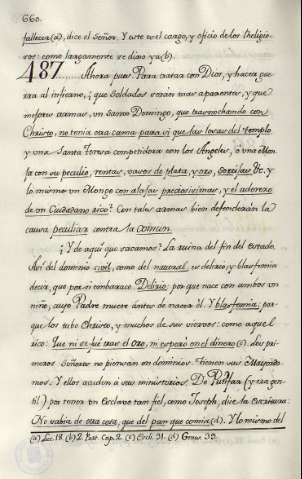 660.
fallezca (a), dice el Señor. Y este es el cargo, y oficio de los Religio-
sos: como largamente se dijo ya (b).
487. Ahora pues. Para tratar con Dios, y hacer gue-
rra al infierno, ¿que Soldados serán mas aparentes, y que
mejores armas, un Santo Domingo, que trasnochando con
Christo, no tenia otra cama para sí que las losas del templo
y una Santa Teresa competidora con los Angeles, ó una Mon-
ja con su peculio, rentas, vasos de plata, y oro, &c. y
lo mismo un Monge con alajas preciosisimas, y el aderezo
de un Ciudadano rico? Con tales armas bien defenderán la
causa peculiar contra la comun.
¿Y de aqui que sacamos? La ruina del fin del estado.
Asi del dominio civil, como del natural, es delirio, y blasfemia
decir, que por sí embarace. Delirio: por que nace con ambos un
niño, cuyo Padre muere ántes de nacer él. Y blasfemia: por
que los tubo Christo, y muchos de sus siervos: como aquel
rico: Que ni se fué tras el oro, ni esperó en el dinero (c). Los pri-
meros Señores no piensan en dominios: tienen sus Mayordo-
mos. Y Ellos acuden á sus ministerios. De Putifar (y era gen-
til) por tener un esclavo tan fiel, como Joseph, dice la escritura:
No sabia de otra cosa, que del pan que comia (d). Y lo mismo del
(a) Luc. 18. (b) 2. Par. Cap. 2. (c) Eccli. 31. (d) Genes. 39.